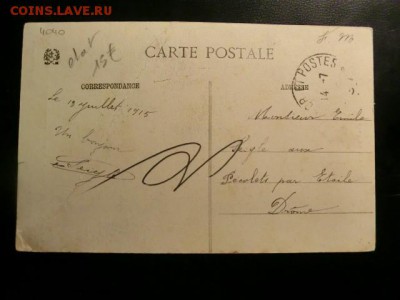 COINS.LAVE.RU
4040
15€
CARTE POSTALE
CORRESPONDANCE
ADRESSE
POSTES
14 -7
Le 13 juillet 1915
Un bonjour
Monsieur Emile
aux
par Etoile
Drôme